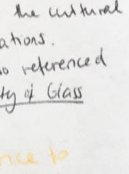 the cultural
ations.
o referenced
ty of Glass
nce to